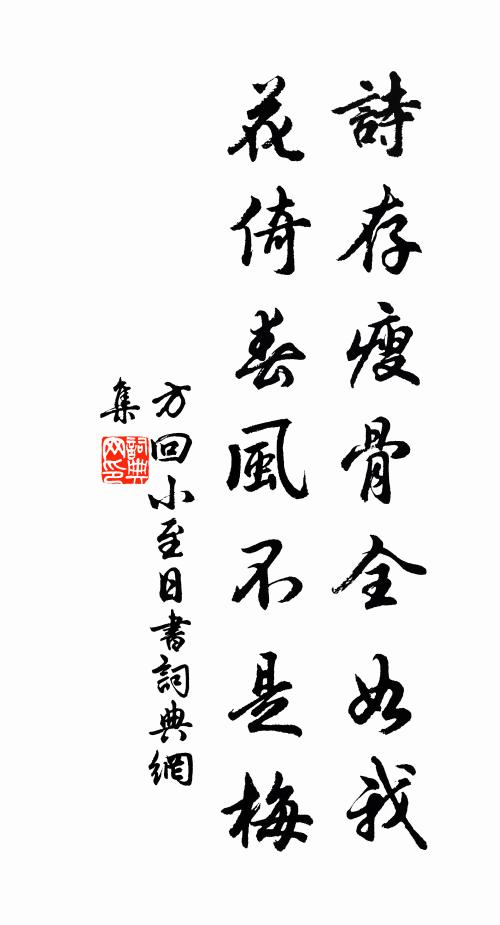 詩存瘦骨全如我
花倚春風不是梅
方回小至日書詞典網
集
詞典網印